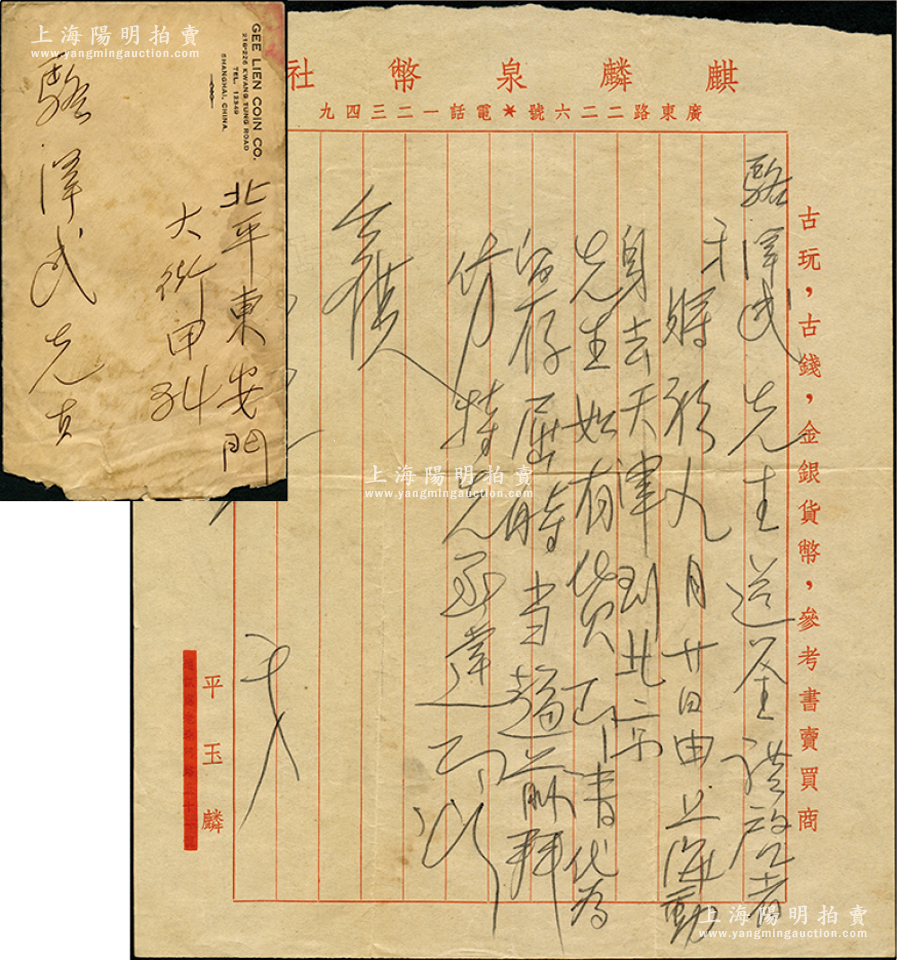 上海陽明拍賣
www.yangmingauction.com
GEE LIEN COIN CO.
216-226 KWANG TUNG ROAD
TEL. 12349
SHANGHAI, CHINA.
北平東安門
大街甲34
駱澤民先生
麒麟泉幣社
廣東路二二六號★電話一二三四九
古玩，古錢，金銀貨幣，參考書賣買商
駱澤民先生
九月廿日由上海動
身去天津到北平
先生如有貨請代為
留存屆時當趨前拜
訪特先函達
平玉麟
上海陽明拍賣
www.yangmingauction.com
上海陽明拍賣
www.yangmingauction.com